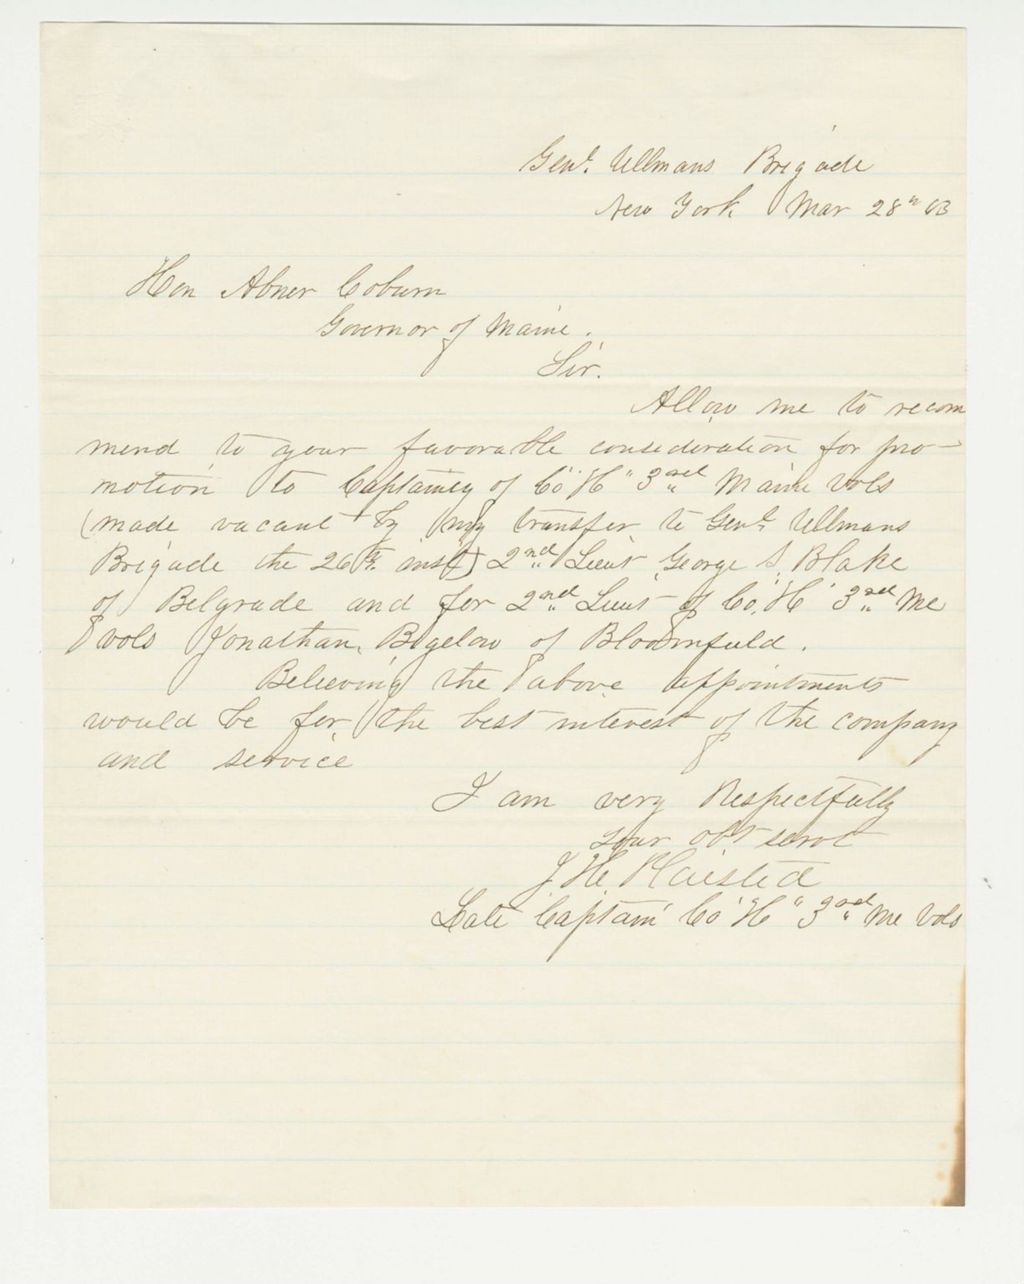 Genl. Ullmans Brigade
New York Mar 28" 63
Hon Abner Coburn
Governor of Maine.
Sir.
Allow me to recom
mend to your favorable consideration for pro-
motion to Captaincy of Co "H" 3rd Maine Vols
(made vacant by my transfer to Genl. Ullmans
Brigade the 26th. inst) 2nd Lieut George S. Blake
of Belgrade and for 2nd Lieut of Co. "H" 3rd Me
vols Jonathan Bigelow of Bloomfield.
Believing the above appointments
would be for the best interest of the company
and service
I am very Respectfully
your obt servt
J H. Plaisted
Late Captain Co "H" 3rd Me Vols